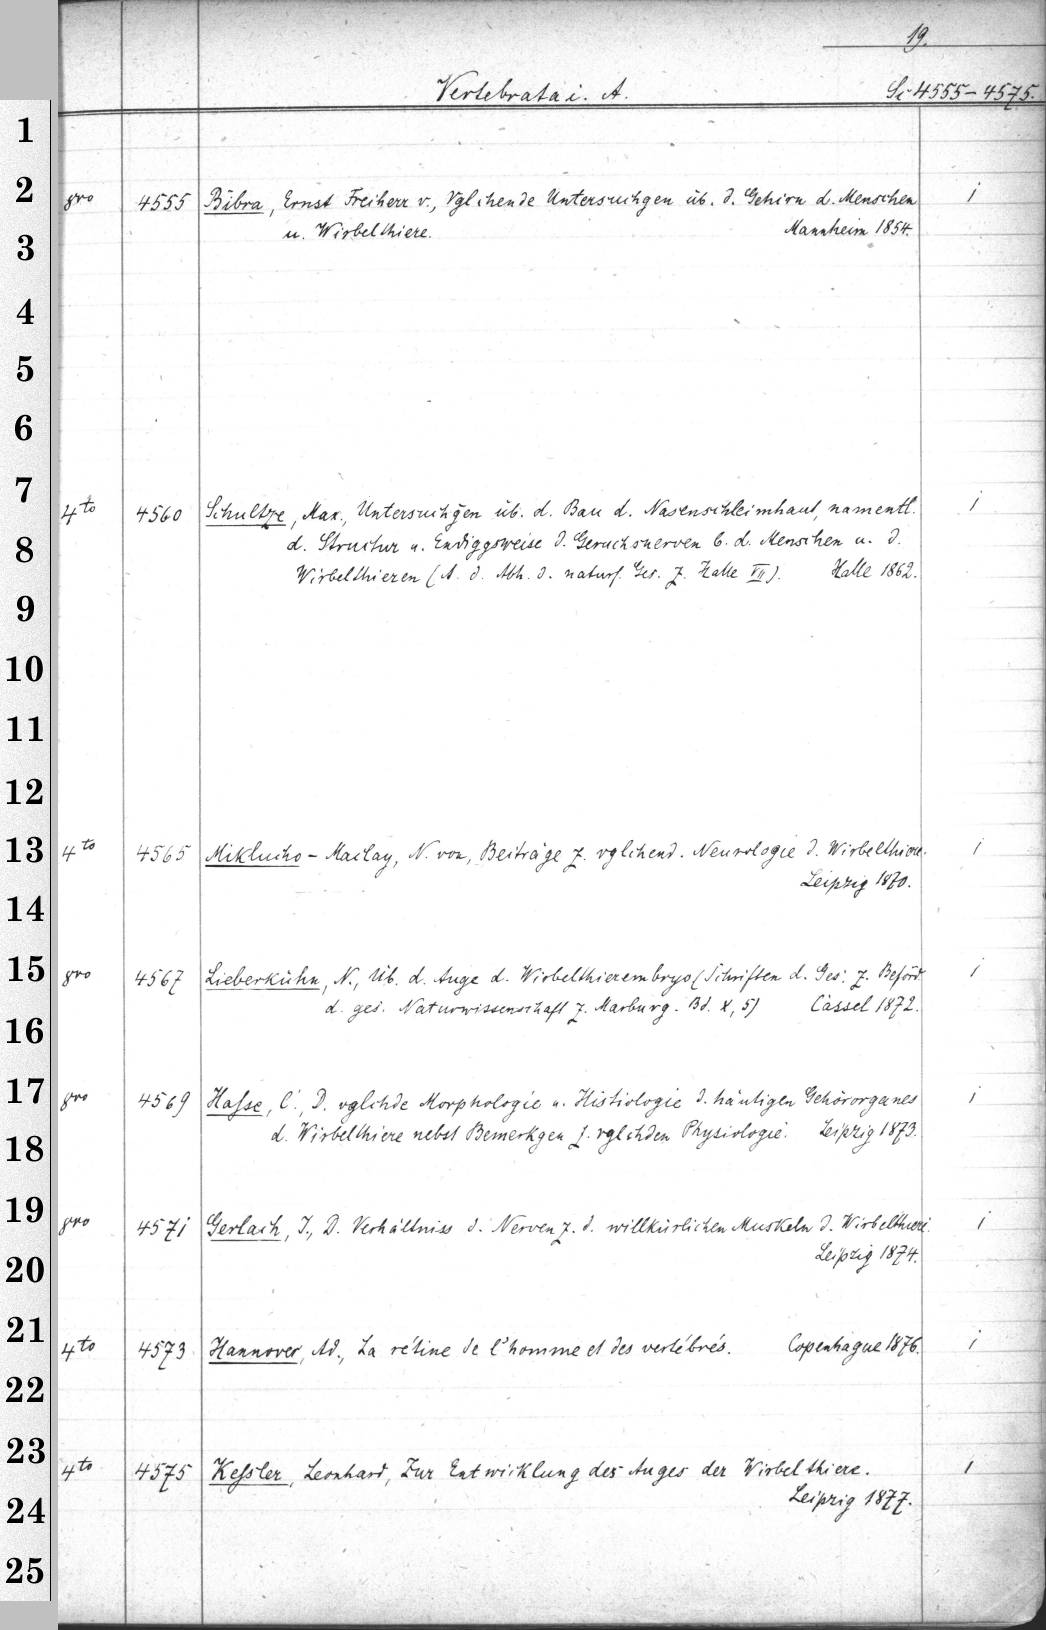 19.
Vertebrata i. A. Sc 4555-4575.
1
2 8vo 4555 Bibra, Ernst Freiherr v., Vglchende Untersuchgen üb. d. Gehirn d. Menschen 1
u. Wirbelthiere. Mannheim 1854.
3
4
5
6
7 4to 4560 Schultze, Max., Untersuchgen üb. d. Bau d. Nasenschleimhaut, namentl. 1
8 d. Structur u. Endiggsweise d. Geruchsnerven b. d. Menschen u. d.
Wirbelthieren (A. d. Abh. d. naturf. Ges. z. Halle VII). Halle 1862.
9
10
11
12
13 4to 4565 Miklucho-Maclay, N. von, Beiträge z. vglchend. Neurologie d. Wirbelthiere. 1
Leipzig 1870.
14
15 8vo 4567 Lieberkühn, N., Üb. d. Auge d. Wirbelthierembryo (Schriften d. Ges. z. Beförd. 1
d. ges. Naturwissenschaft z. Marburg. Bd. X, 5) Cassel 1872.
16
17 8vo 4569 Hasse, C., D. vglchde Morphologie u. Histiologie d. häutigen Gehörorganes 1
d. Wirbelthiere nebst Bemerkgen z. vglchden Physiologie. Leipzig 1873.
18
19 8vo 4571 Gerlach, J., D. Verhältniss d. Nerven z. d. willkürlichen Muskeln d. Wirbelthiere. 1
Leipzig 1874.
20
21 4to 4573 Hannover, Ad., La rétine de l'homme et des vertébrés. Copenhague 1876. 1
22
23 4to 4575 Kessler, Leonhard, Zur Entwicklung des Auges der Wirbelthiere. 1
24 Leipzig 1877.
25